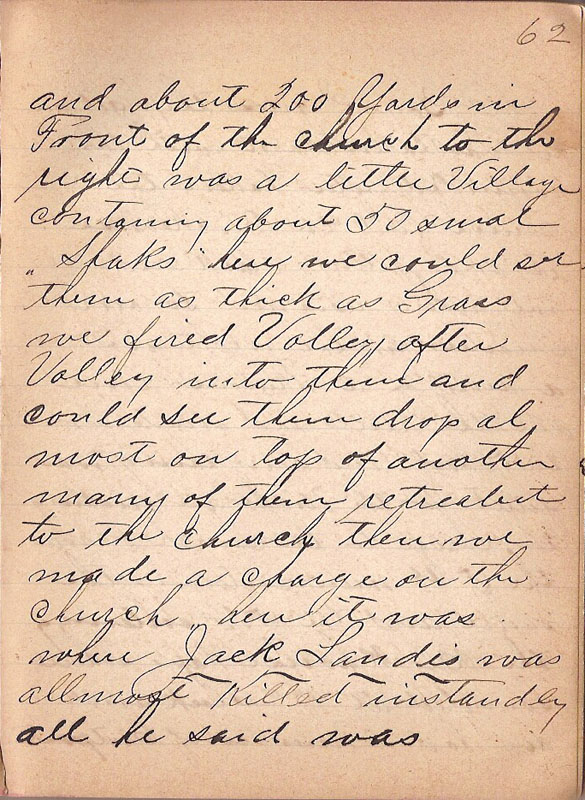 62
and about 200 Yards in
Front of the church to the
right was a little Village
contaning about 50 smal
"Shaks" here we could see
them as thick as Grass
we fired Volley after
Volley into them and
could see them drop al
most on top of another
many of them retreabet
to the church then we
made a charge on the
church, here it was
where Jack Landis was
allmost Killed instandly
all he said was